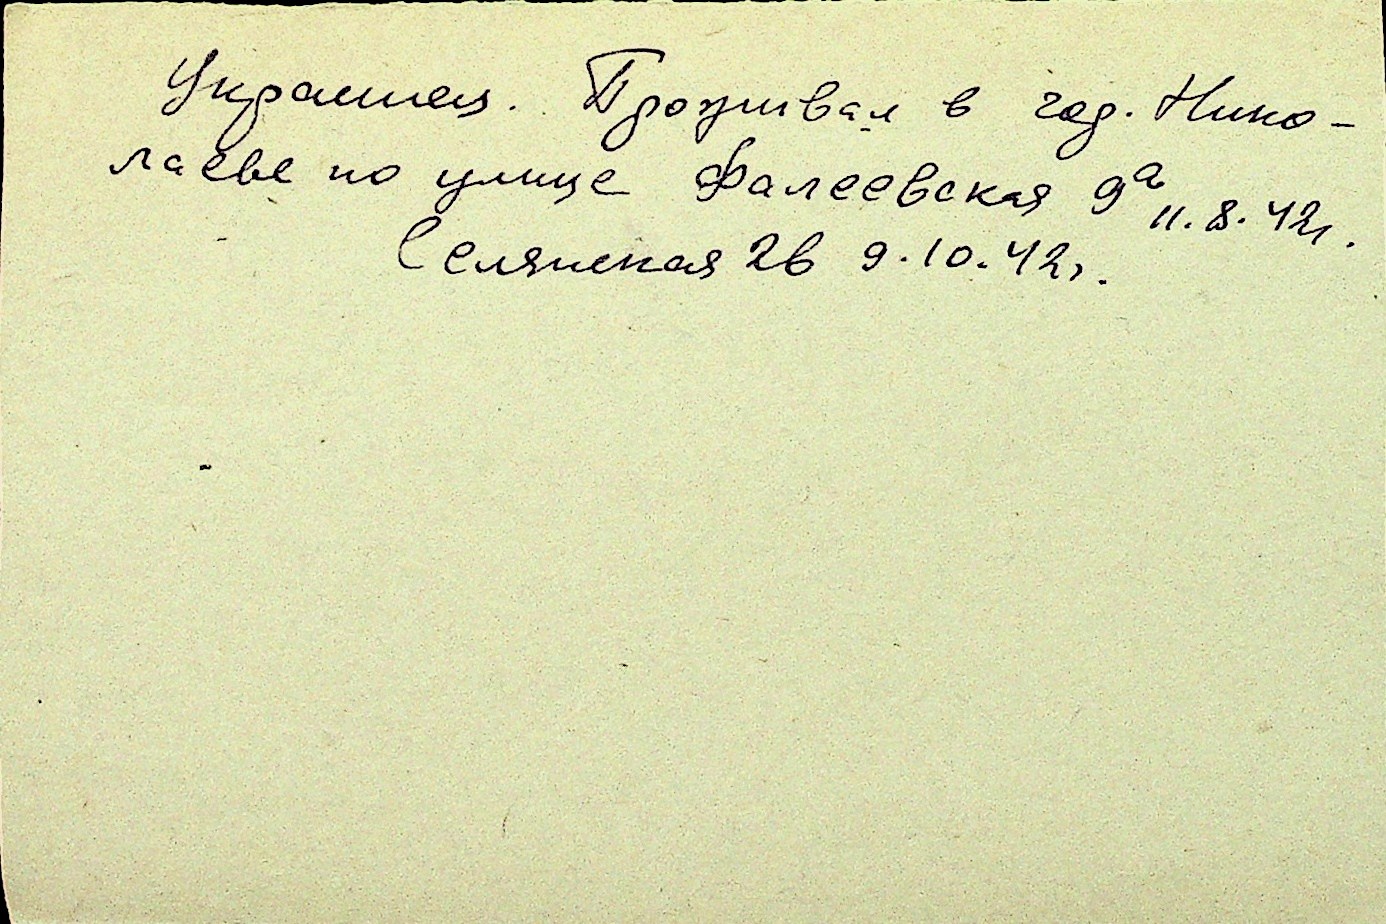 Украинец. Проживал в гор. Нико-
лаеве по улице Фалеевская 9а 11.8.42г.
Селянская 2в 9.10.42г.